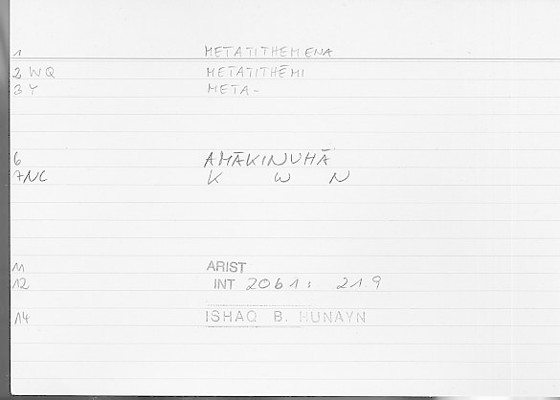 1 METATITHEMENA
2 WQ METATITHĒMI
3 Y META-
6 AMĀKINUHĀ
7NC K W N
11 ARIST
12 INT 20b1: 21.9
14 ISHAQ B. HUNAYN